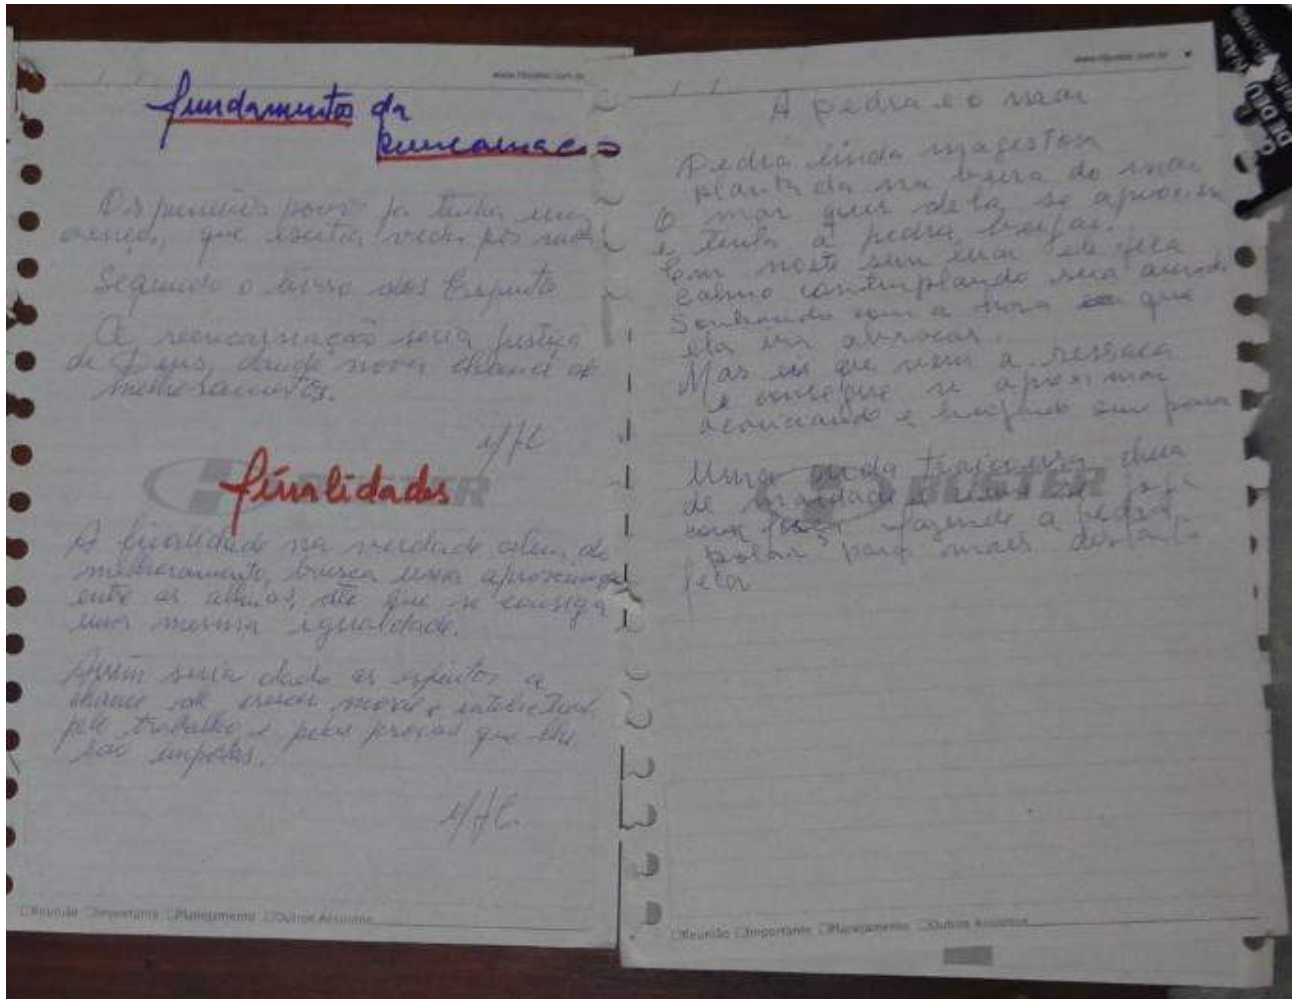 www.hbuster.com.br
fundamentos da
Reencarnação
Os primeiros povos já tinha uma
crença, que existia vida pós
Segundo o livro dos Espirito
A reencarnação seria justiça
de Deus, dando nova chance de
melhoramentos.
finalidades
HBUSTER
A finalidade na verdade além do
melhoramento, busca uma
entre as almas, até que se consiga
uma mesma igualdade.
Assim seria dado as espiritos a
chance de crescer moral e intelectual
pelo trabalho e pelas provas que lhe
são impostas.
Reunião Importante Planejamento Outros Assuntos
www.hbuster.com.br
A pedra e o mar
Pedra linda magestosa
plantada na beira do mar
O mar quer dela se aproximar
e tenta a pedra beijar.
Em noite sem luar ele fica
calmo contemplando sua
Sonhando com a hora que
ela vai abraçar.
Mas eis que vem a ressaca
e consegue se aproximar
acariciando e beijando sem parar
Uma onda traiçoeira cheia
de maldade
com força fazendo a pedra
rolar para mais distante
ficar
HBUSTER
Reunião Importante Planejamento Outros Assuntos